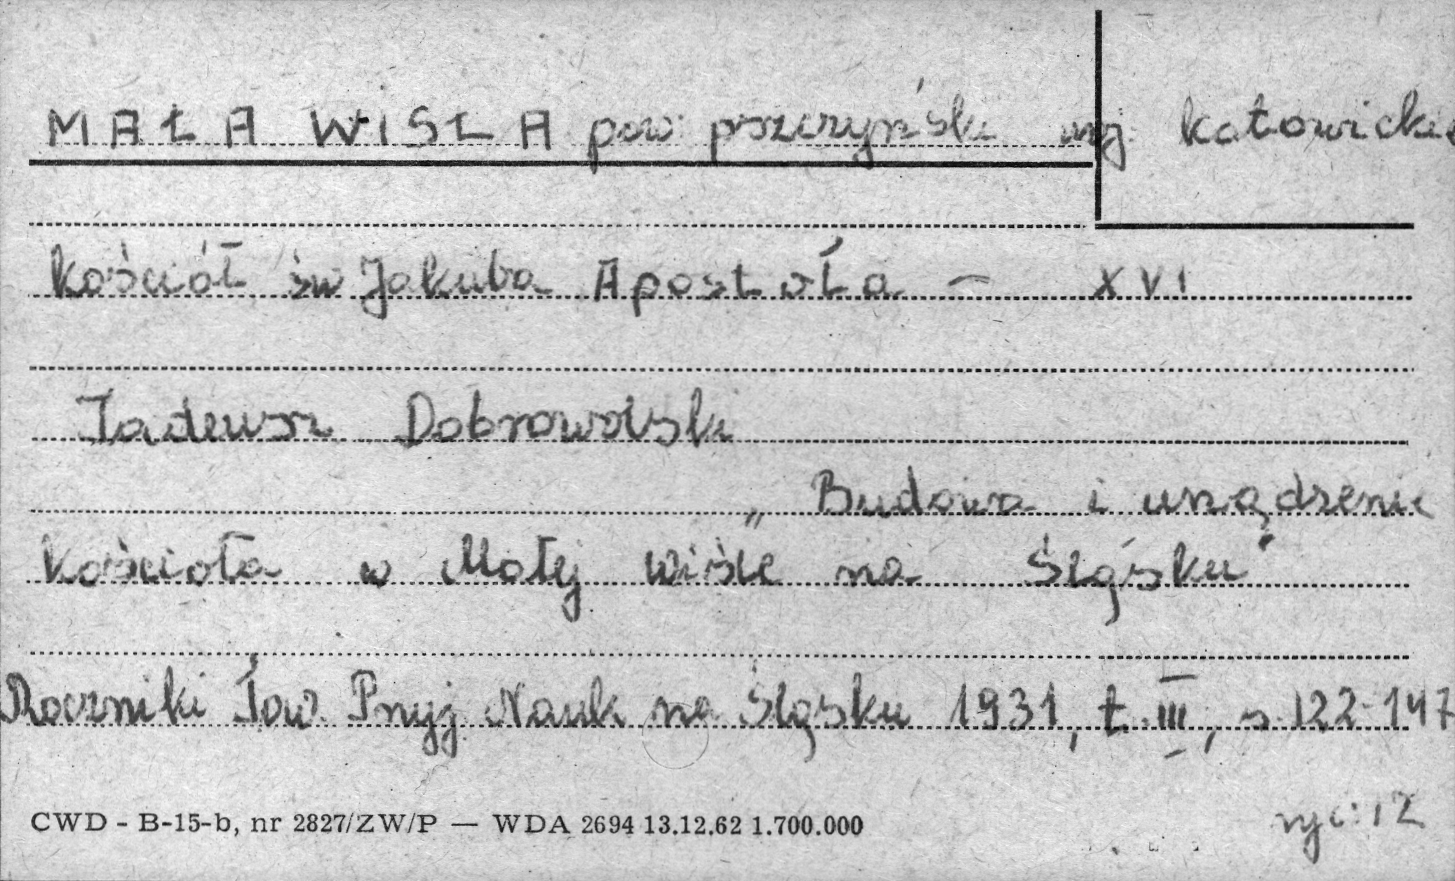 MAŁA WISŁA pow. pszczyński woj. katowickie
Kościół św Jakuba Apostoła – XVI
Tadeusz Dobrowolski
„Budowa i urządzenie
kościoła w Małej Wiśle na Śląsku"
Roczniki Tow. Przyj. Nauk na Śląsku 1931, t. III, s. 122-147
CWD - B-15-b, nr 2827/ZW/P — WDA 2694 13.12.62 1.700.000
ryc: 12